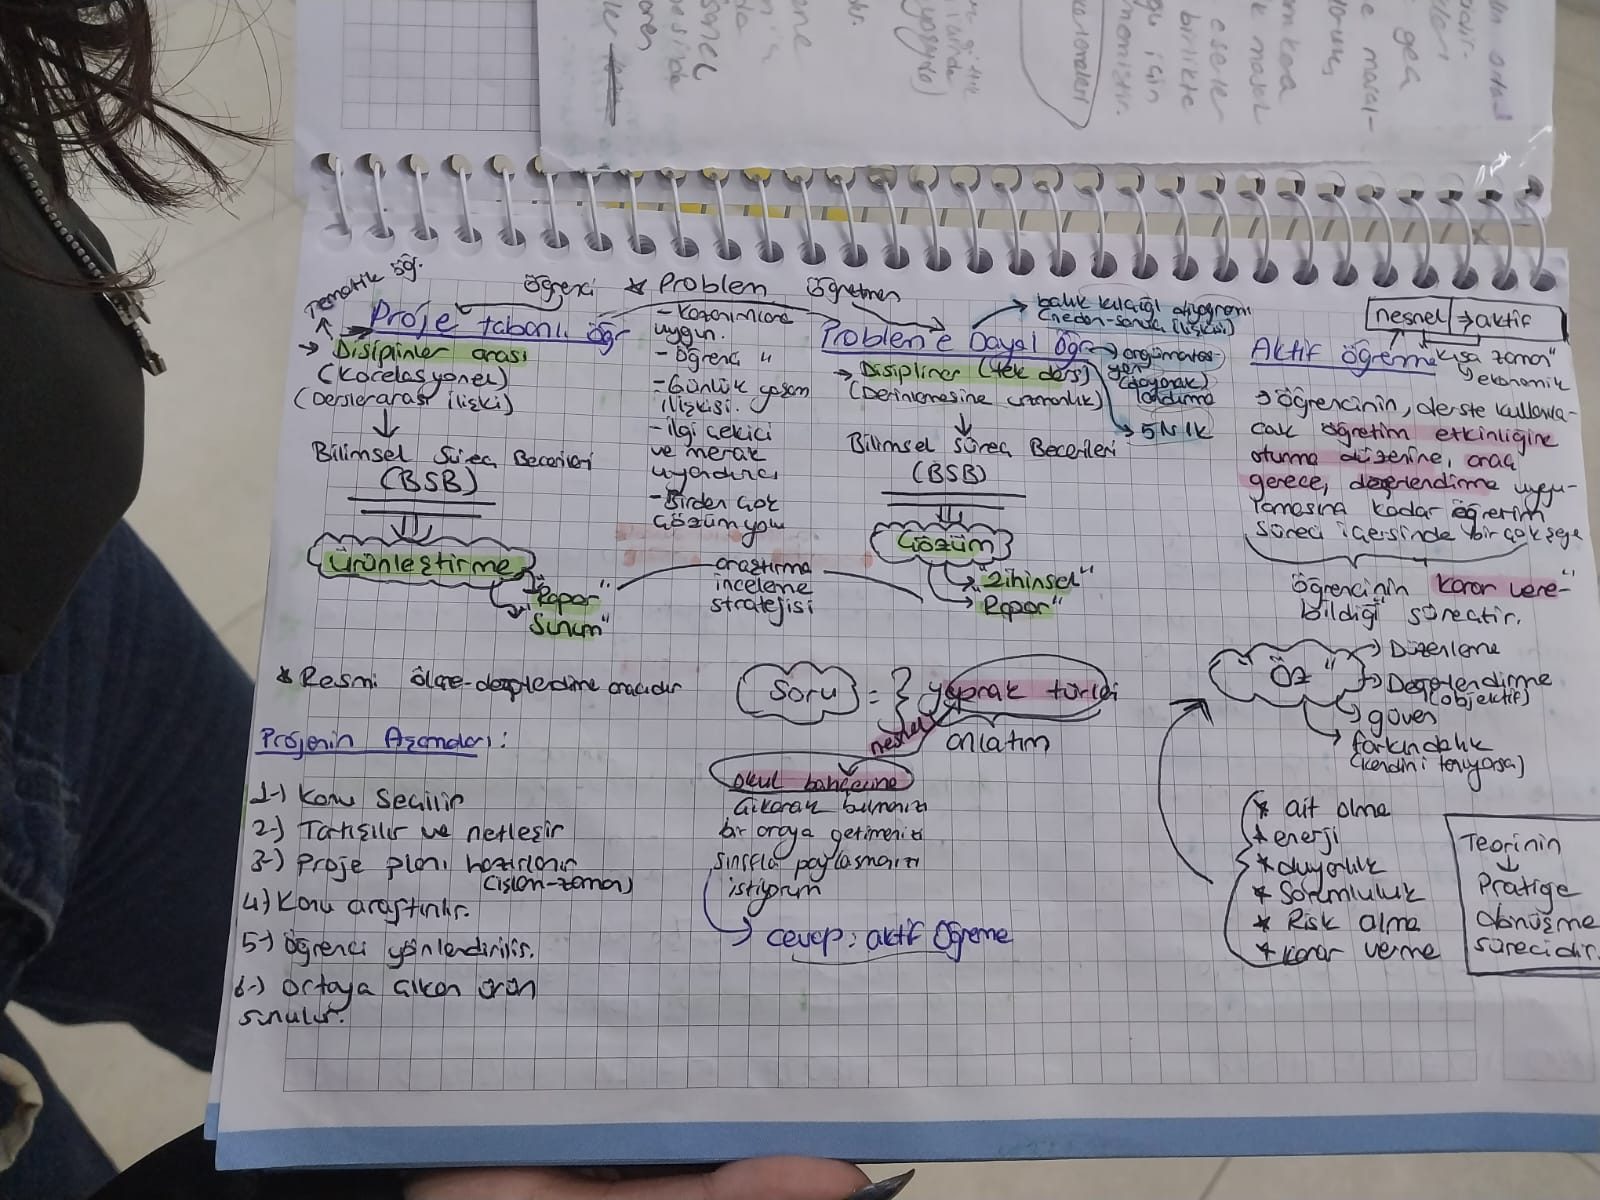 Tematik öğ.
Öğrenci * Problem Öğretmen
Proje tabanlı öğr
→ Disiplinler arası
(Korelasyonel)
(Derslerarası ilişki)
Bilimsel Süreç Becerileri
(BSB)
Ürünleştirme
"Rapor"
"Sunum"
- Kazanımlara
uygun.
- Öğrenci "
- Günlük yaşam
ilişkisi.
- ilgi çekici
ve merak
uyandırıcı
- Birden çok
çözüm yolu
araştırma
inceleme
stratejisi
Probleme Dayal Öğr
→ balık kılçığı diyagramı
(neden-sonuç ilişkisi)
→ Disipliner (tek ders)
(Derinlemesine uzmanlık)
(dayanak
landırma
→ 5N1K
Bilimsel Süreç Becerileri
(BSB)
Çözüm
"Zihinsel"
Rapor"
nesnel → aktif
Aktif öğrenme
"Kısa zaman"
ekonomik
→ Öğrencinin, derste kullanıla-
cak öğretim etkinliğine
oturma düzenine, araç
gerece, değerlendirme uygu-
lamasına kadar öğretim
süreci içersinde bir çok şeye
öğrencinin karar vere-"
bildiği" süreçtir.
"Öz"
→ Düzenleme
→ Değerlendirme
(objektif)
→ güven
→ farkındalık
(kendini tanıyorsa)
* ait olma
* enerji
* duyarlık
* Sorumluluk
* Risk alma
* karar verme
Teorinin
↓
Pratiğe
dönüşme
sürecidir.
* Resmi ölçme-değerlendirme aracıdır
Soru = } yaprak türleri
nesnel
anlatım
okul bahçesine
çıkarak bulmanızı
bir araya getirmenizi
sınıfla paylaşmanızı
istiyorum
→ cevap: aktif Öğreme
Projenin Aşamaları:
1-) Konu Seçilir
2-) Tartışılır ve netleşir
3-) Proje planı hazırlanır
(işlem-zaman)
4-) Konu araştırılır.
5-) öğrenci yönlendirilir.
6-) Ortaya çıkan ürün
sunulur.